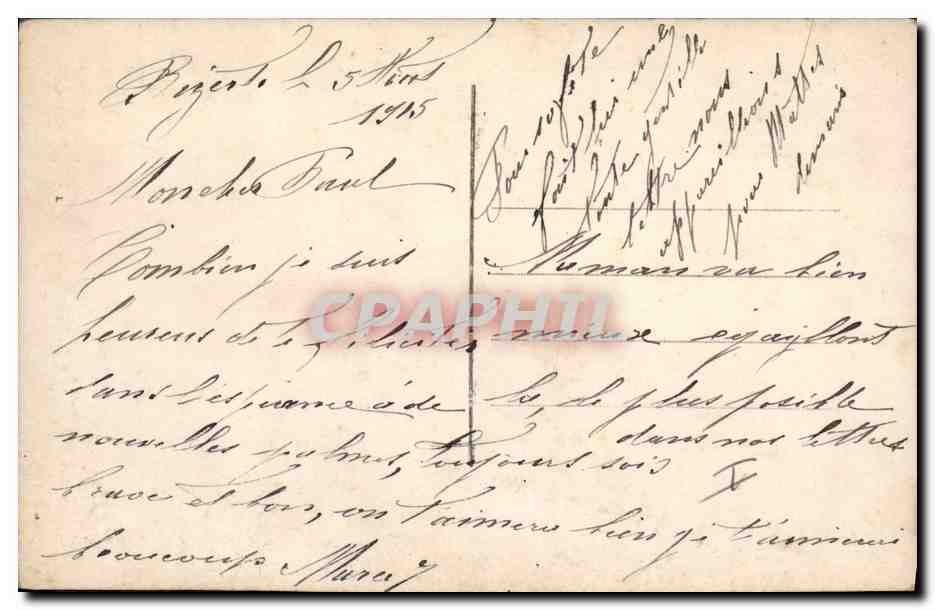 Bizerte le 5 Mars
1915
Mon cher Paul
Combien je suis
heureux de te féliciter
dans l'espérance de
nouvelles palmes, toujours sois
brave et bon, on t'aimera bien je t'aimerai
beaucoup
Maman va bien
mieux egayllont
la, le plus possible
dans nos lettres
X
fait
lettre nous
appareillons
pour Malte
demain
CPAPHIL